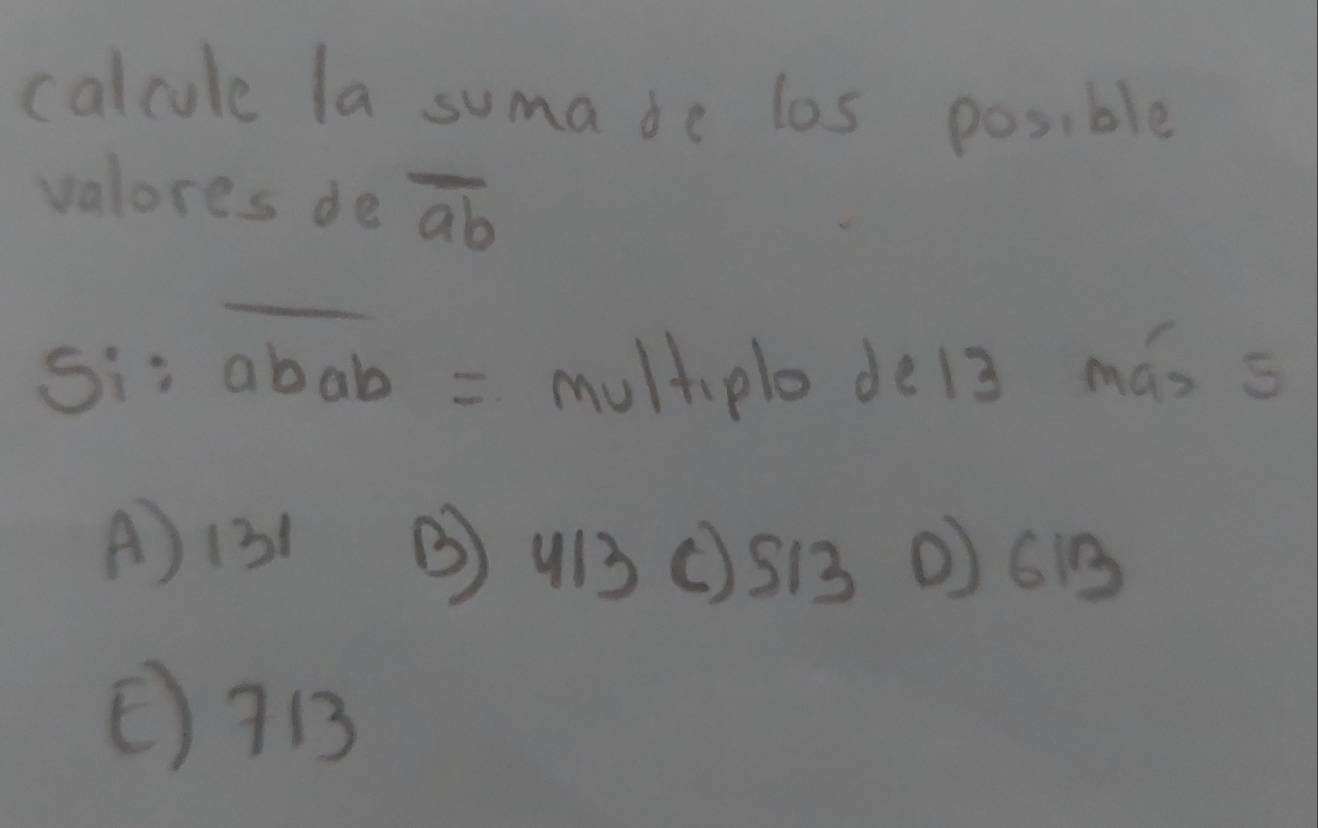 calcule la suma de los posible
valores de ab
Si: abab = multiplo de 13 más 5
A) 131 B) 413 C) 513 D) 613
E) 713